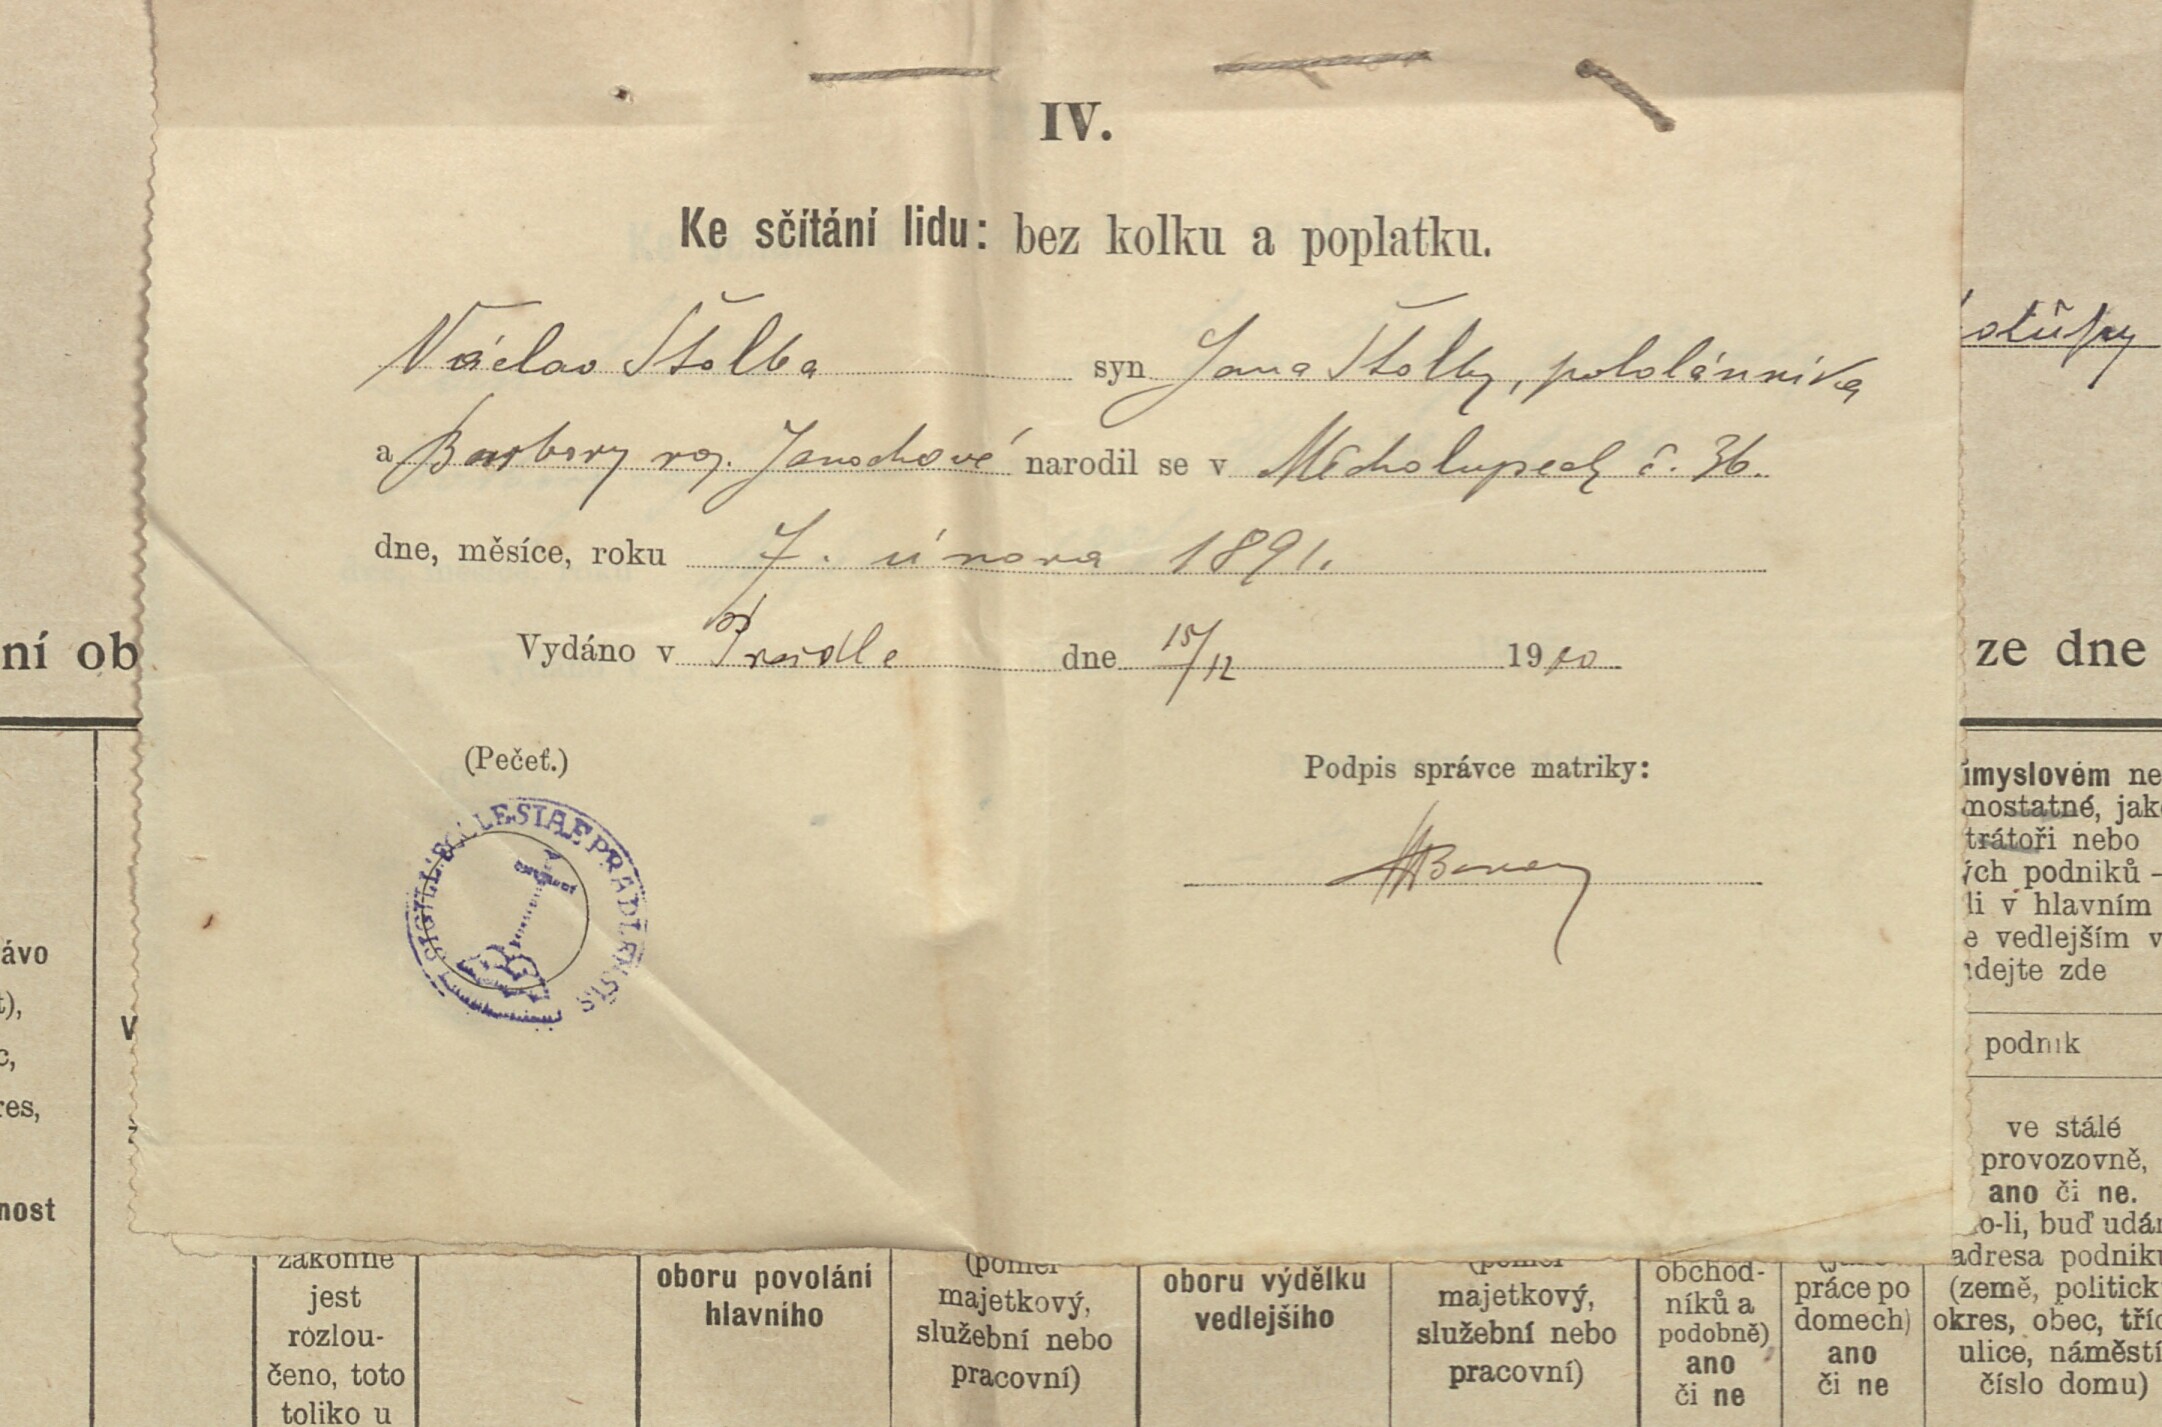 IV.
Ke sčítání lidu: bez kolku a poplatku.
Václav Štolba syn Jana Štolby, pololánníka
a Barbory roz. Janochové narodil se v Měcholupech č. 36.
dne, měsíce, roku 7. února 1891.
Vydáno v Prádle dne 15/12 1910
(Pečeť.)
Podpis správce matriky:
SIGILL. ECCLESIAE PRADLENSIS
ní ob
ze dne
ávo
t),
c,
res,
nost
V
imyslovém ne
mostatné, jak
trátoři nebo
ých podniků –
li v hlavním
e vedlejším v
dejte zde
podnik
ve stálé
provozovně,
ano či ne.
o-li, buď udán
adresa podniku
(země, politick
okres, obec, tříd
ulice, náměstí
číslo domu)
zákonně
jest
rozlou-
čeno, toto
toliko u
oboru povolání
hlavního
(poměr
majetkový,
služební nebo
pracovní)
oboru výdělku
vedlejšího
(poměr
majetkový,
služební nebo
pracovní)
obchod-
níků a
podobně)
ano
či ne
práce po
domech)
ano
či ne